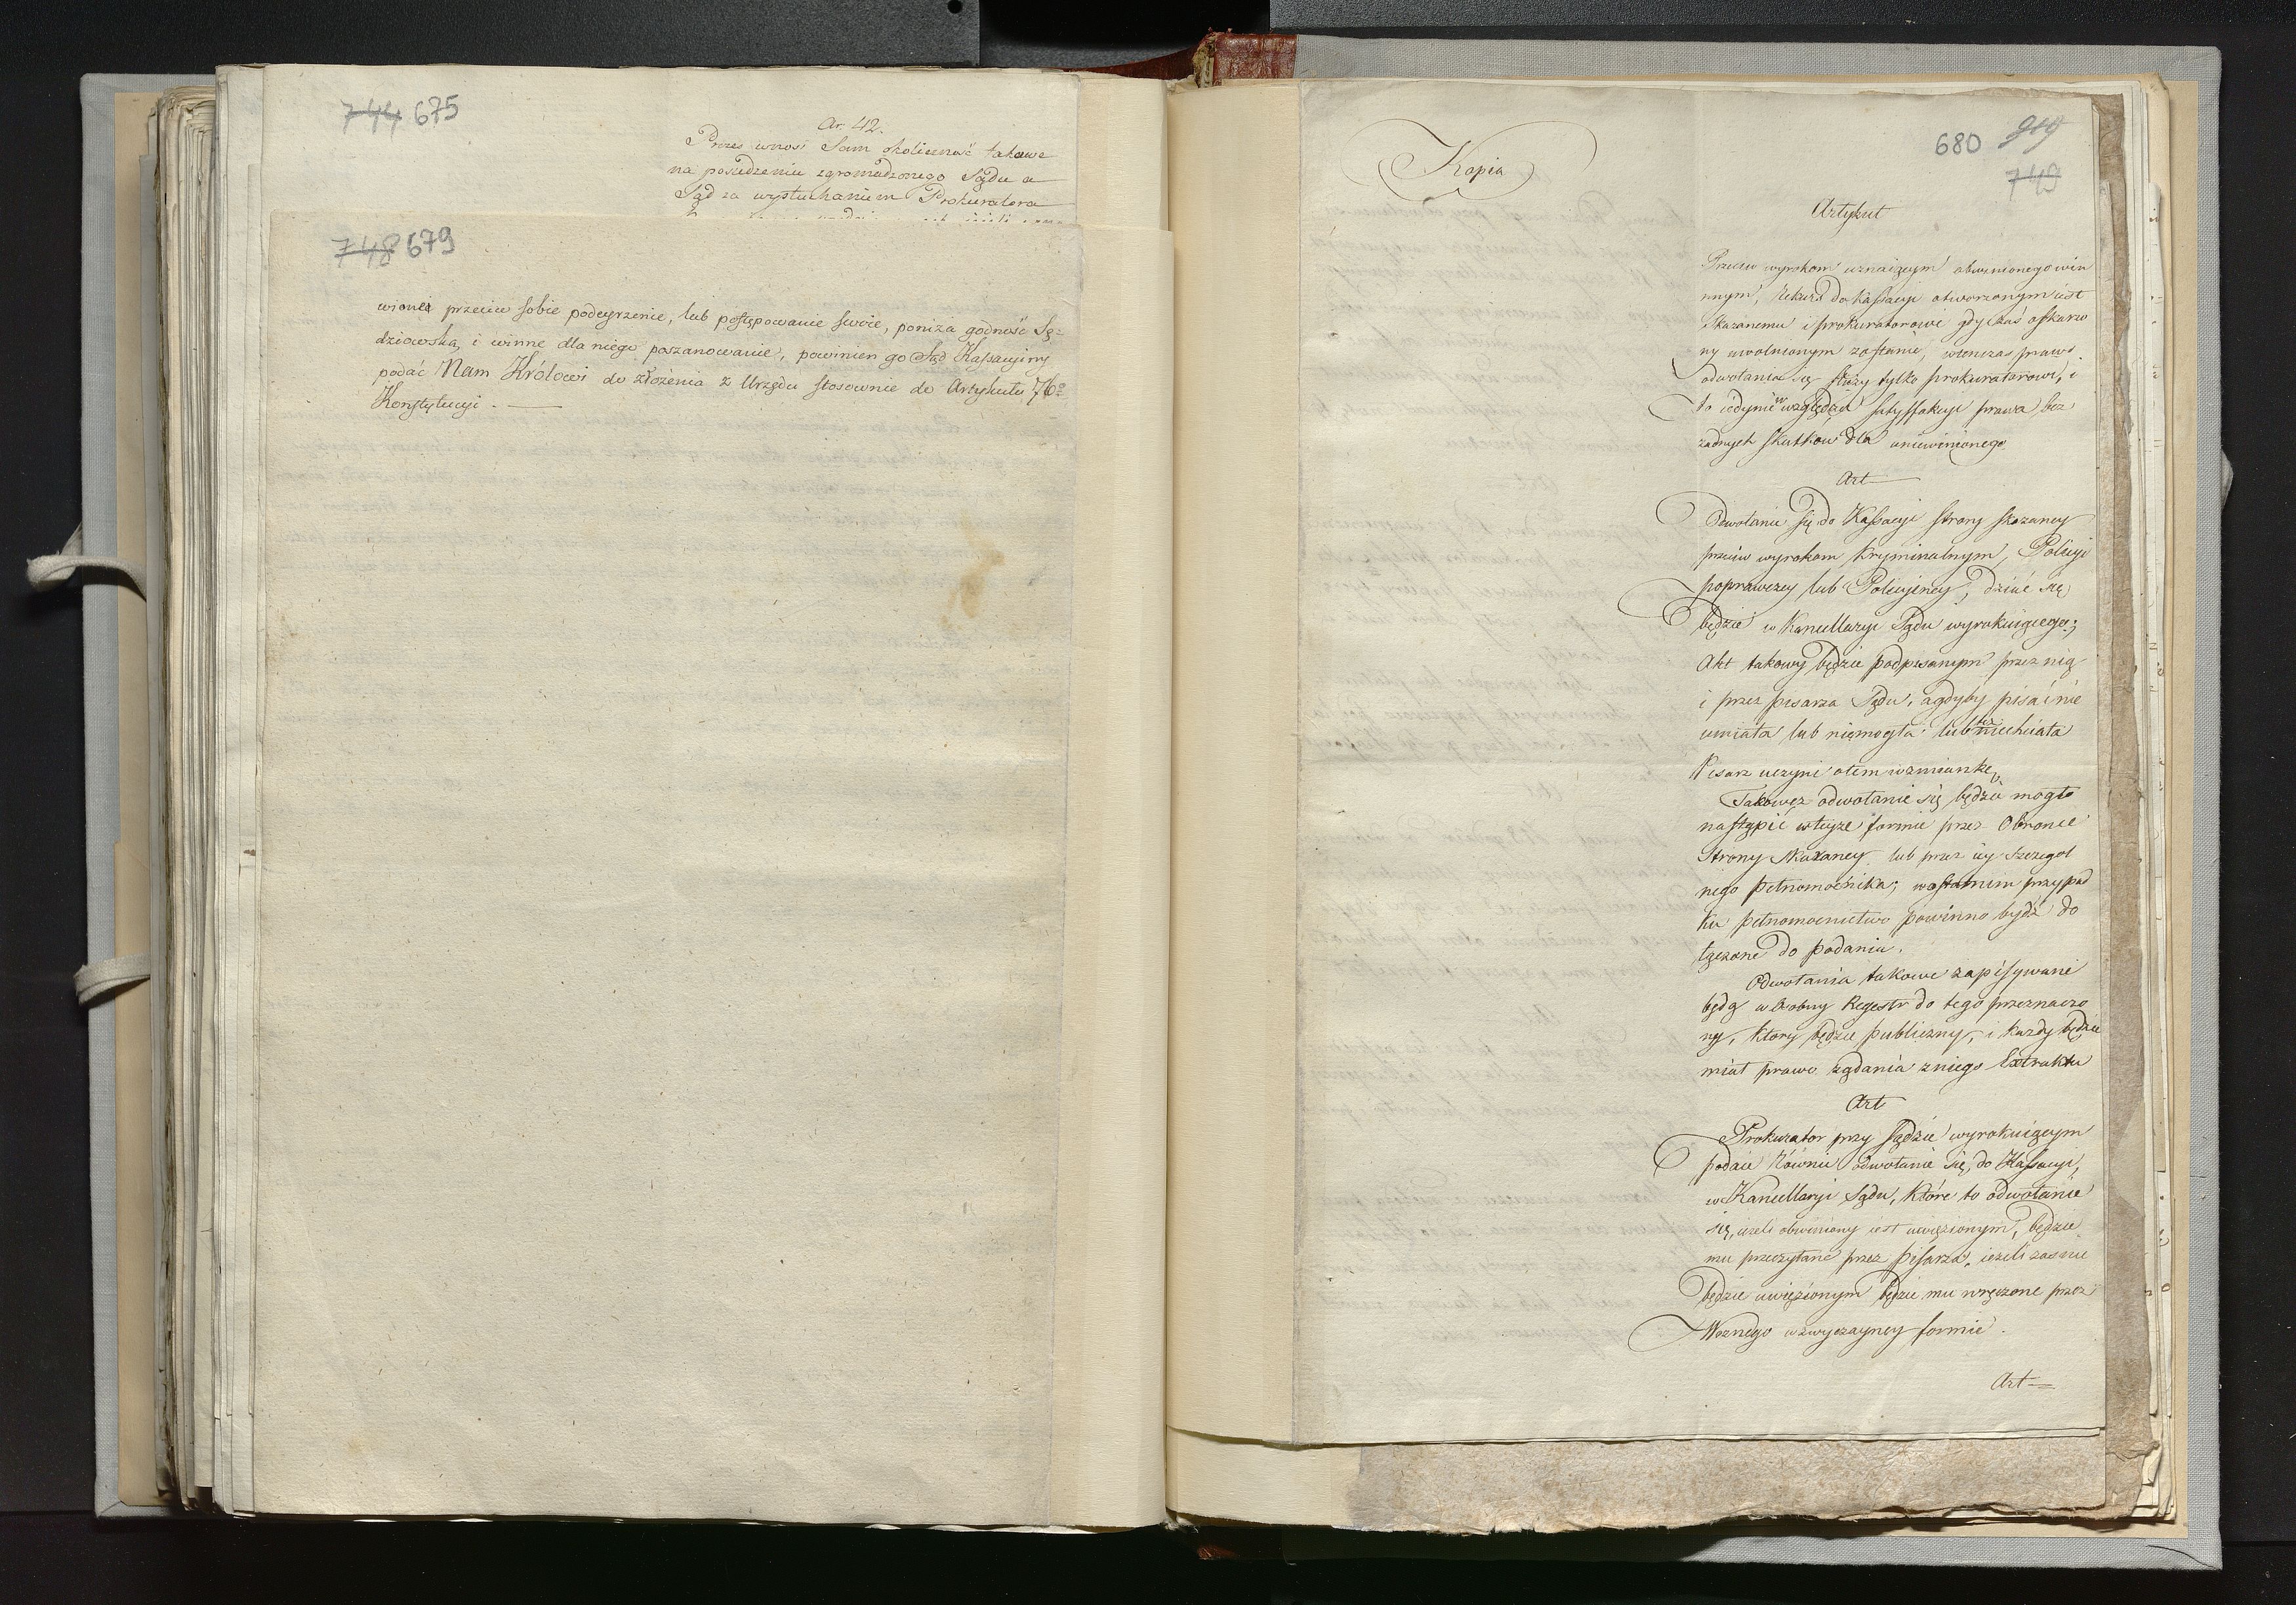 744 675
Ar. 42.
Prezes wnosi Sam okoliczność takowe
na posiedzeniu zgromadzonego Sądu a
Sąd za wysłuchaniem Prokuratora
748 679
wionei przeciw sobie podeyrzenie, lub postępowanie swoie, poniża godność Sę-
dziowską, i winne dla niego poszanowanie, powinien go Sąd Kassacyiny
podać Nam Królowi do złożenia z Urzędu stosownie do Artykułu 76º
Konstytucyi. —
680 919
749
Kopia
Artykuł
Przeciw wyrokom uznaiącym obwinionego win
nnym, rekurs do Kassacyi otworzonym iest
Skazanemu i prokuratorowi gdy zaś oskarżo
ny uwolnionym zostanie, wtenczas prawo
odwołania się służy tylko prokuratorowi, i
to iedynie w względzie satysfakcyi prawa bez
żadnych skutków dla uniewinionego
Art
Odwołanie się do Kassacyi strony skazaney
przeciw wyrokom kryminalnym, Policyi
poprawczey lub Policyiney, dziać się
będzie w Kancellaryi Sądu wyrokuiącego;
Akt takowy będzie podpisanym przez nią
i przez pisarza Sądu, a gdyby pisać nie
umiała lub niemogła lub też niechciała
Pisarz uczyni otem wzmiankę,
Takowęż odwołanie się będzie mogło
nastąpić w teyże formie przez Obrońcę
Strony skazaney lub przez iey szczegól
nego pełnomocnika; w ostatnim przypad
ku pełnomocnictwo powinno bydź do
łączone do podania.
Odwołania takowe zapisywane
będą w osobny Regestr do tego przeznaczo
ny, który będzie publiczny, i każdy będzie
miał prawo żądania z niego Extraktu
Art
Prokurator przy sądzie wyrokuiącym
podaie równie odwołanie się, do Kassacyi,
w Kancellaryi Sądu, które to odwołanie
się, ieżeli obwiniony iest uwięzionym, będzie
mu przeczytane przez pisarza, ieżeli zaś nie
będzie uwięzionym będzie mu wręczone przez
Woznego w zwyczayney formie.
Art